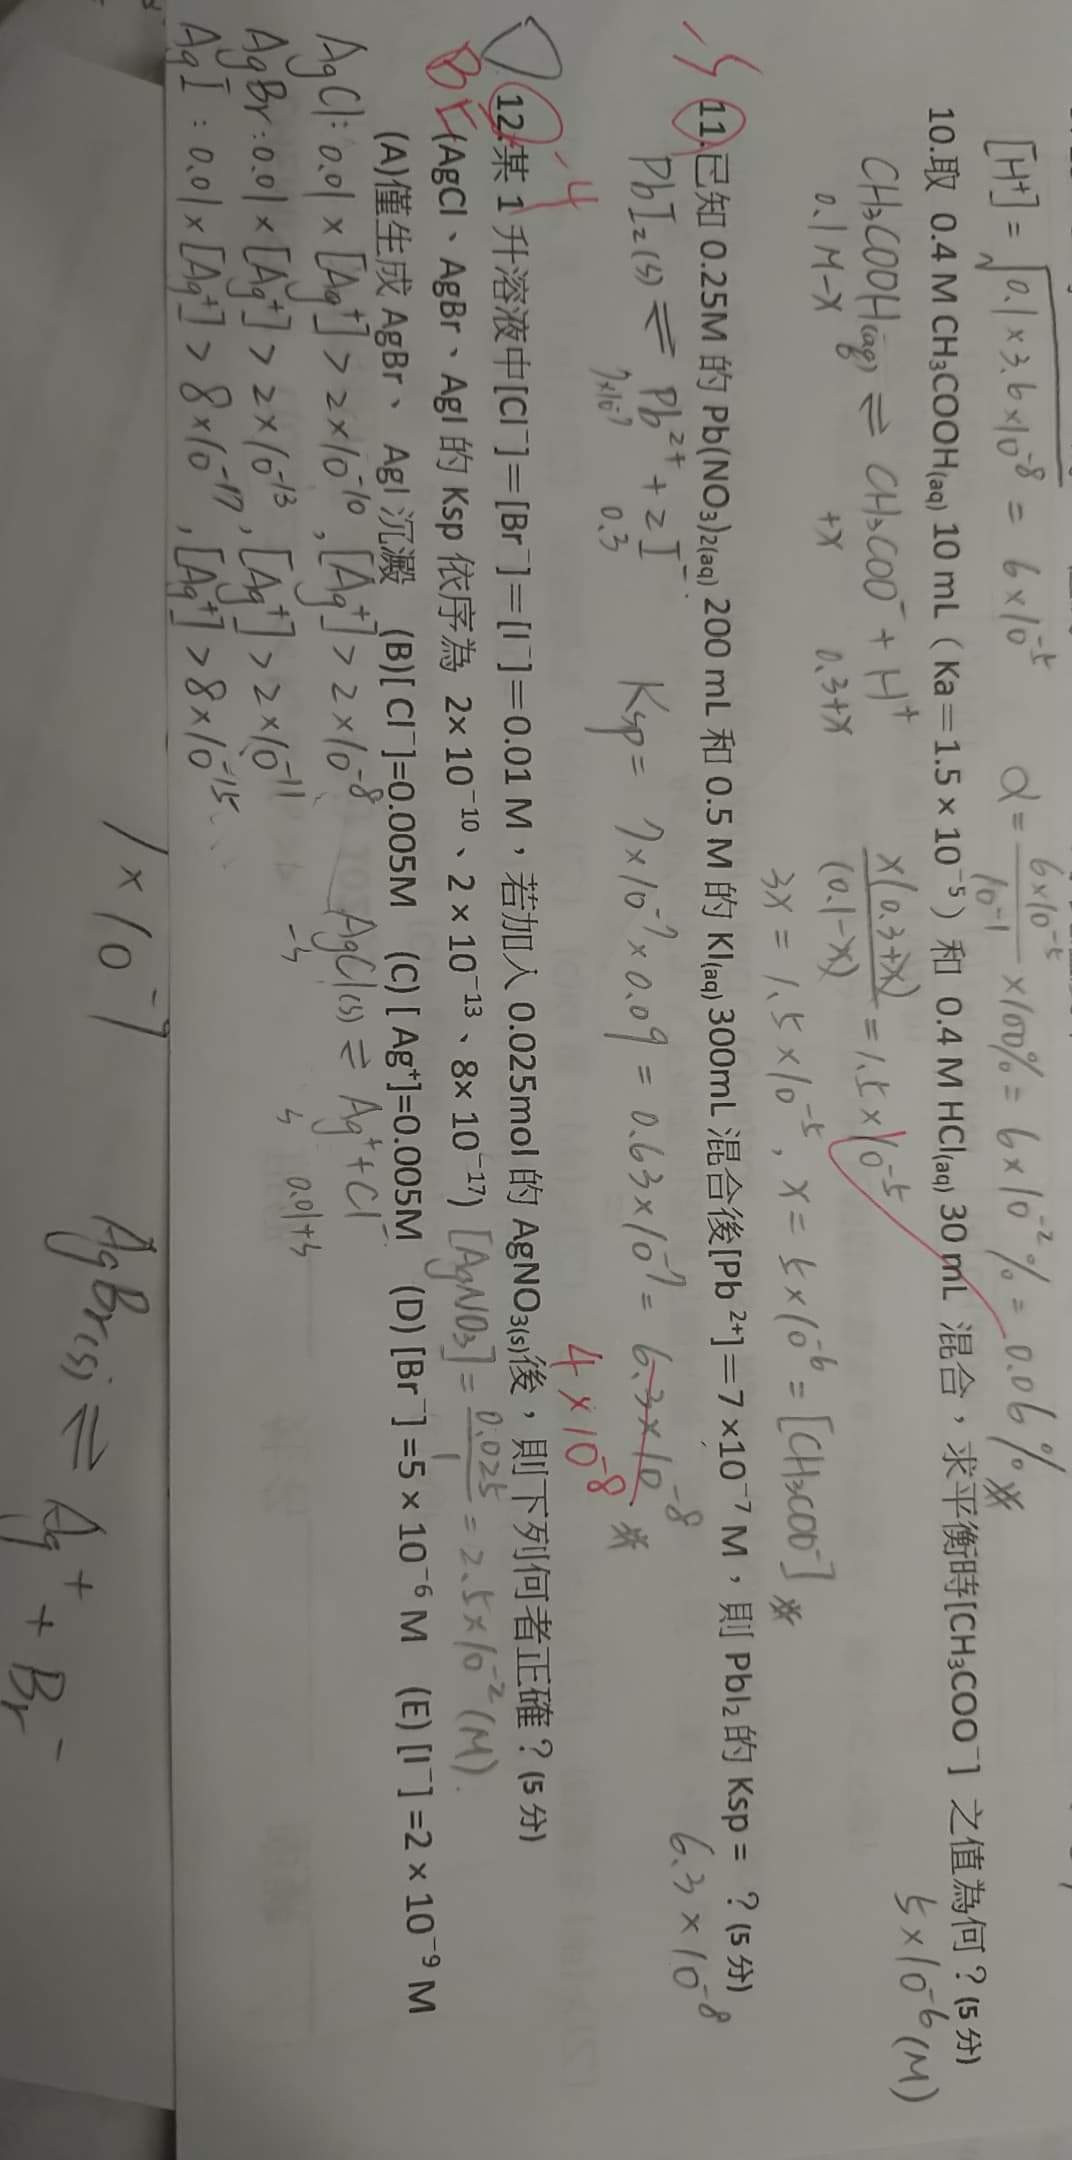 [H⁺] = √0.1×3.6×10⁻⁸ = 6×10⁻⁵ α = 6×10⁻⁵/10⁻¹ ×100% = 6×10⁻²% = 0.06%※
10.取 0.4 M CH₃COOH(aq) 10 mL（Ka＝1.5 × 10⁻⁵）和 0.4 M HCl(aq) 30 mL 混合，求平衡時[CH₃COO⁻] 之值為何？(5 分)
5×10⁻⁶ (M)
CH₃COOH(aq) ⇌ CH₃COO⁻ + H⁺ x(0.3+x)/(0.1-x) = 1.5×10⁻⁵
0.1M-x +x 0.3+x
3x = 1.5×10⁻⁵, x = 5×10⁻⁶ = [CH₃COO⁻]※
-5
11.已知 0.25M 的 Pb(NO₃)₂(aq) 200 mL 和 0.5 M 的 KI(aq) 300mL 混合後[Pb²⁺]＝7 ×10⁻⁷ M，則 PbI₂ 的 Ksp = ？(5 分)
6.3×10⁻⁸
PbI₂(s) ⇌ Pb²⁺ + 2I⁻ Ksp = 7×10⁻⁷×0.09 = 0.63×10⁻⁷ = 6.3×10⁻⁸※
7×10⁻⁷ 0.3
4×10⁻⁸
-4
12.某 1 升溶液中[Cl⁻]＝[Br⁻]＝[I⁻]＝0.01 M，若加入 0.025mol 的 AgNO₃(s)後，則下列何者正確？(5 分)
BE
(AgCl、AgBr、AgI 的 Ksp 依序為 2× 10⁻¹⁰、2 × 10⁻¹³、8× 10⁻¹⁷) [AgNO₃] = 0.025/1 = 2.5×10⁻²(M).
(A)僅生成 AgBr、 AgI 沉澱 (B)[ Cl⁻]=0.005M (C) [ Ag⁺]=0.005M (D) [Br⁻] =5 × 10⁻⁶ M (E) [I⁻] =2 × 10⁻⁹ M
AgCl: 0.01×[Ag⁺] > 2×10⁻¹⁰, [Ag⁺] > 2×10⁻⁸ AgCl(s) ⇌ Ag⁺ + Cl⁻
-s s 0.01+s
AgBr: 0.01×[Ag⁺] > 2×10⁻¹³, [Ag⁺] > 2×10⁻¹¹
AgI: 0.01×[Ag⁺] > 8×10⁻¹⁷, [Ag⁺] > 8×10⁻¹⁵
1×10⁻⁷ AgBr(s) ⇌ Ag⁺ + Br⁻